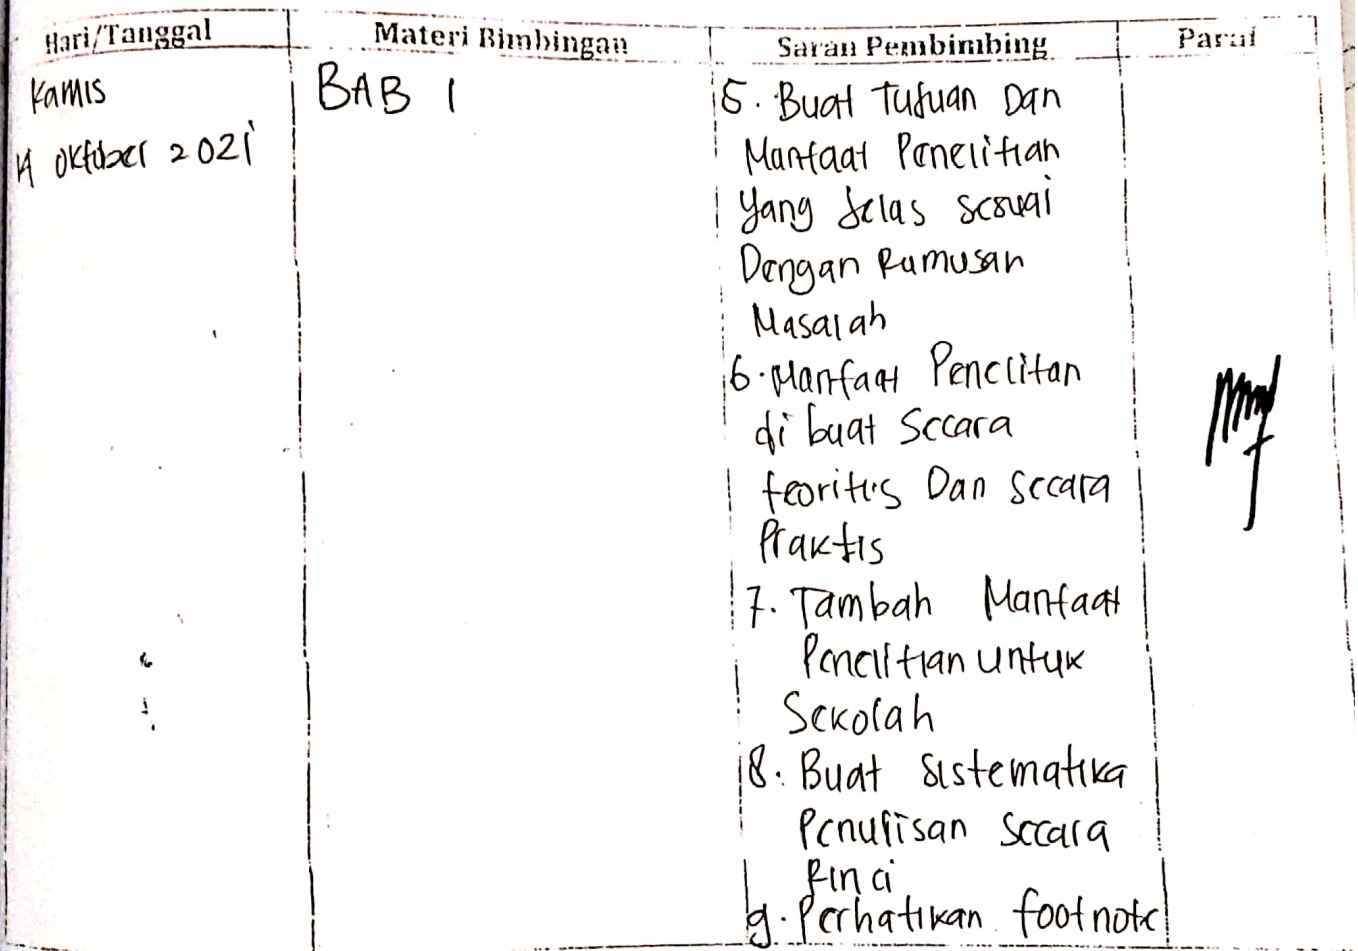 Hari/Tanggal Materi Bimbingan Saran Pembimbing Paraf
Kamis BAB 1 5. Buat Tujuan Dan
14 Oktober 2021 Manfaat Penelitian
Yang Jelas sesuai
Dengan Rumusan
Masalah
6. Manfaat Penelitan
di buat Secara
teoritis Dan secara
Praktis
7. Tambah Manfaat
Penelitian untuk
Sekolah
8. Buat sistematika
Penulisan Secara
Rinci
9. Perhatikan footnote